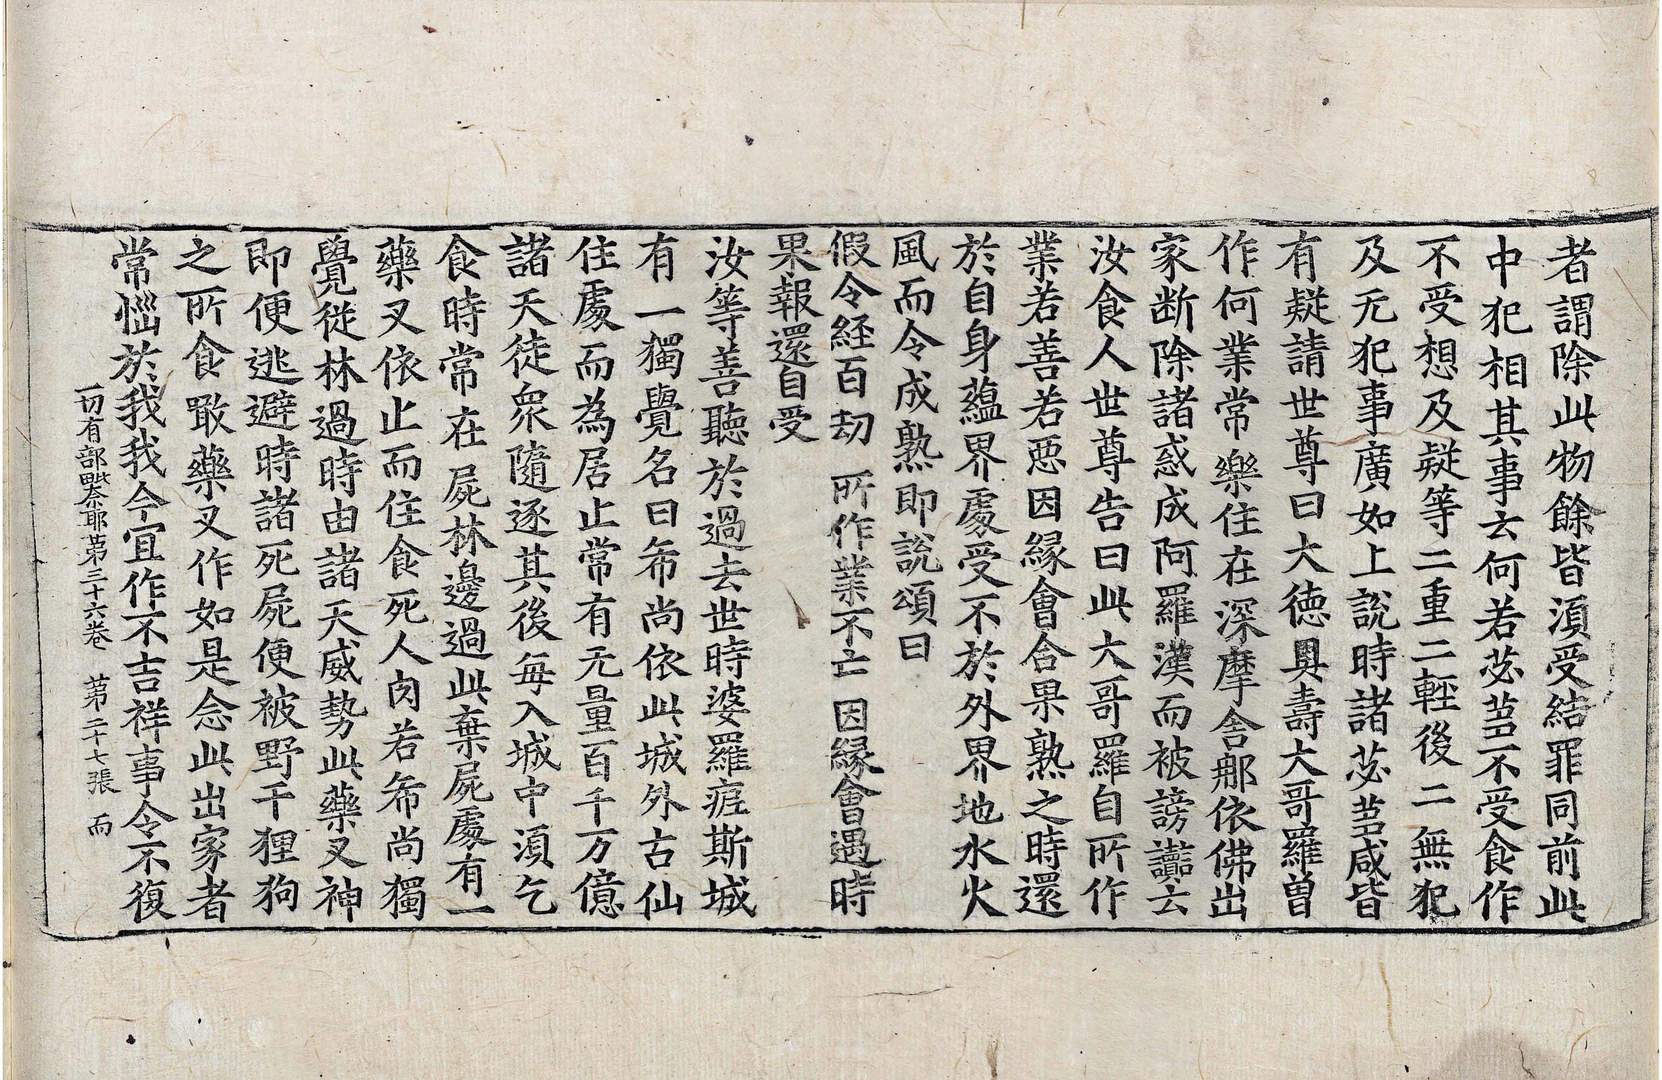 者謂除此物餘皆湏受結罪同前此
中犯相其事云何若苾蒭不受食作
不受想及疑等二重二輕後二無犯
及无犯事廣如上說時諸苾蒭咸皆
有疑請世尊曰大徳具壽大哥羅曽
作何業常樂住在深摩舍那依佛出
家断除諸惑成阿羅漢而被謗讟去
汝食人世尊告曰此大哥羅自所作
業若善若惡因緣會合果熟之時還
於自身蘊界處受不於外界地水火
風而令成熟即說頌曰
假令経百劫　所作業不亡　因緣會遇時
果報還自受
汝等善聽於過去世時婆羅痆斯城
有一獨覺名曰希尚依此城外古仙
住處而為居止常有无量百千万億
諸天徒衆隨逐其後每入城中湏乞
食時常在屍林邊過此棄屍處有一
藥叉依止而住食死人肉若希尚獨
覺従林過時由諸天威勢此藥叉神
即便逃避時諸死屍便被野干狸狗
之所食噉藥叉作如是念此出家者
常惱於我我今宜作不吉祥事令不復
一切有部毗奈耶苐三十六卷　苐二十七張　而